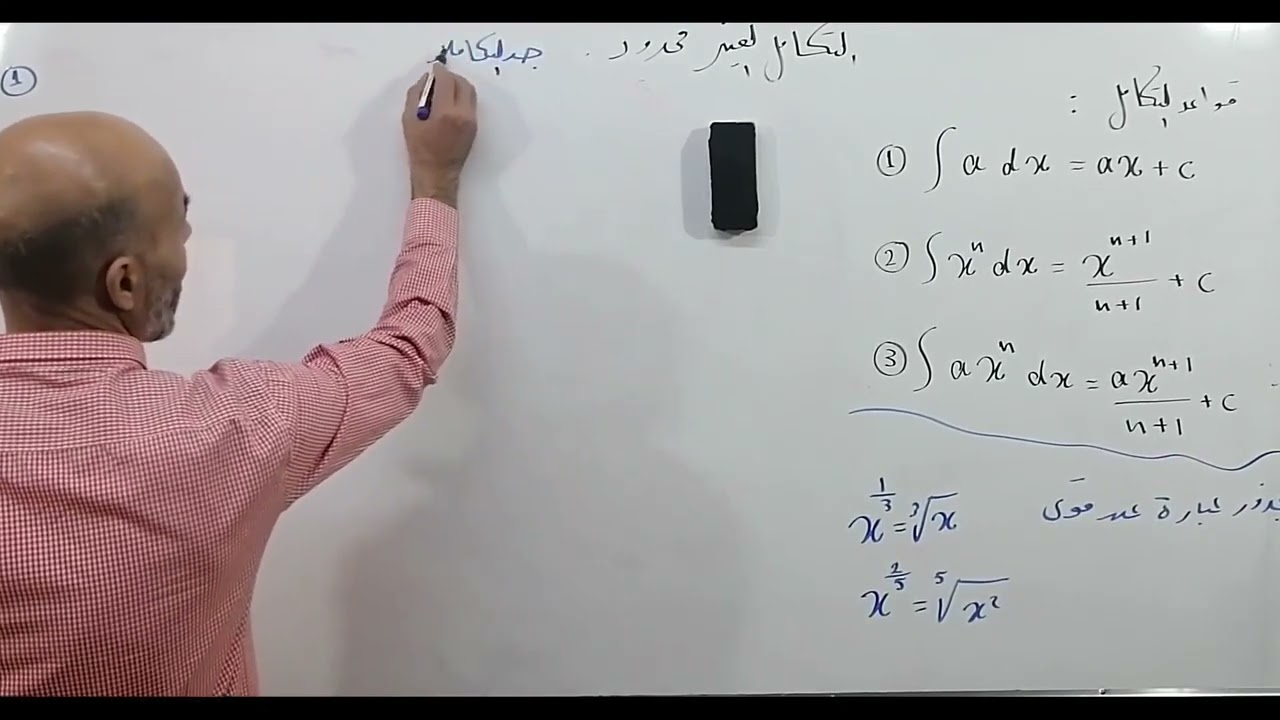 التكامل الغير محدود . جد التكامل
①
قواعد التكامل :
① ∫ a dx = ax + c
② ∫ xⁿ dx = xⁿ⁺¹/n+1 + c
③ ∫ axⁿ dx = axⁿ⁺¹/n+1 + c
عبارة عن قوى
x^(1/3) = ³√x
x^(2/5) = ⁵√x²